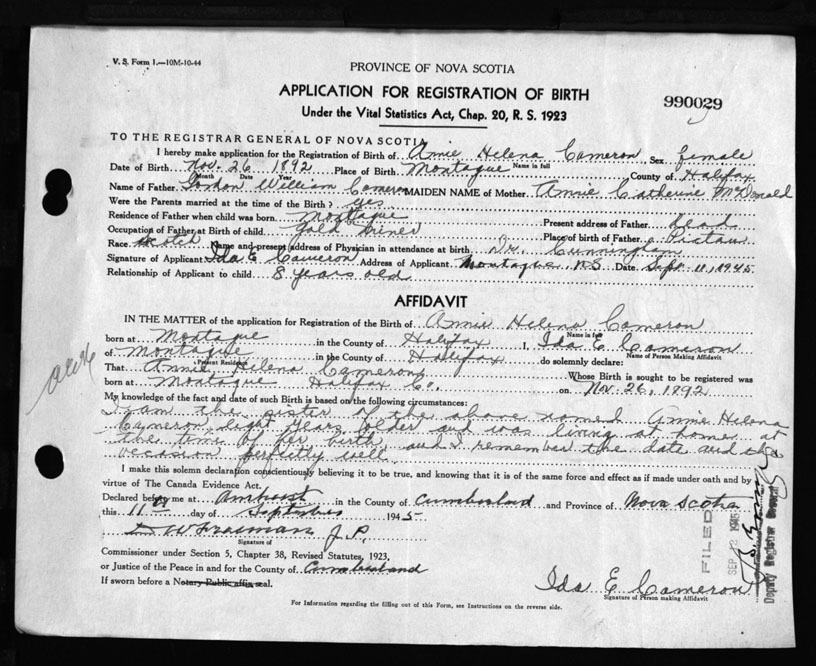 V. S. Form 1.—10M-10-44
PROVINCE OF NOVA SCOTIA
APPLICATION FOR REGISTRATION OF BIRTH
990029
Under the Vital Statistics Act, Chap. 20, R. S. 1923
TO THE REGISTRAR GENERAL OF NOVA SCOTIA
I hereby make application for the Registration of Birth of Annie Helena Cameron Sex female
Name in full
Date of Birth Nov. 26 1892 Place of Birth Montague County of Halifax
Month Date Year
Name of Father Gordon William Cameron MAIDEN NAME of Mother Annie Catherine McDonald
Were the Parents married at the time of the Birth? yes
Residence of Father when child was born Montague Present address of Father dead
Occupation of Father at Birth of child Gold miner Place of birth of Father Pictou
Race Scotch Name and present address of Physician in attendance at birth Dr. Cunningham
Signature of Applicant Ida E Cameron Address of Applicant Montague, N.S. Date Sept. 11, 1945
Relationship of Applicant to child 8 years old
AFFIDAVIT
IN THE MATTER of the application for Registration of the Birth of Annie Helena Cameron
Name in full
born at Montague in the County of Halifax I, Ida E Cameron
Name of Person Making Affidavit
of Montague in the County of Halifax do solemnly declare:
Present Residence
That Annie Helena Cameron Whose Birth is sought to be registered was
born at Montague Halifax Co. on Nov. 26, 1892
My knowledge of the fact and date of such Birth is based on the following circumstances:
I am the sister of the above named Annie Helena
Cameron, eight years older and was living at home at
the time of her birth, and I remember the date and the
occasion perfectly well.
I make this solemn declaration conscientiously believing it to be true, and knowing that it is of the same force and effect as if made under oath and by
virtue of The Canada Evidence Act.
Declared before me at Amherst in the County of Cumberland and Province of Nova Scotia
this 11th day of September 1945
J. P.
Signature of
Commissioner under Section 5, Chapter 38, Revised Statutes, 1923,
or Justice of the Peace in and for the County of Cumberland
If sworn before a Notary Public affix seal.
Ida E Cameron
Signature of Person making Affidavit
For Information regarding the filling out of this Form, see Instructions on the reverse side.
FILED
SEP 12 1945
Deputy Registrar General